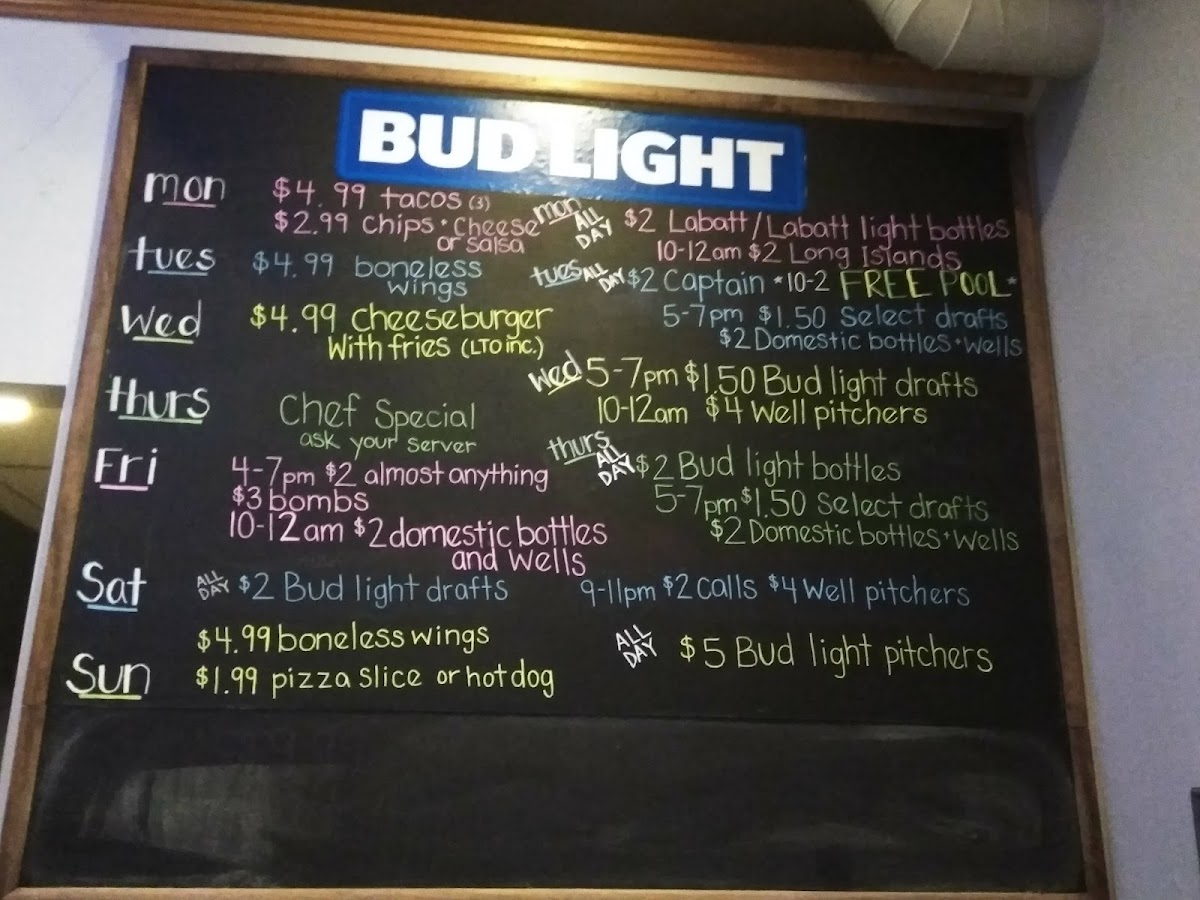 BUD LIGHT
mon
$4.99 tacos (3)
$2.99 chips + cheese
or salsa
mon ALL DAY
$2 Labatt/Labatt light bottles
10-12am $2 Long Islands
tues
$4.99 boneless
wings
tues ALL DAY
$2 Captain *10-2 FREE POOL*
5-7pm $1.50 select drafts
$2 Domestic bottles + wells
Wed
$4.99 cheeseburger
with fries (LTO inc.)
Wed 5-7pm $1.50 Bud light drafts
10-12am $4 Well pitchers
thurs
Chef Special
ask your server
thurs ALL DAY
$2 Bud light bottles
5-7pm $1.50 select drafts
$2 Domestic bottles + wells
Fri
4-7pm $2 almost anything
$3 bombs
10-12am $2 domestic bottles
and wells
Sat
ALL DAY $2 Bud light drafts
9-11pm $2 calls $4 well pitchers
Sun
$4.99 boneless wings
$1.99 pizza slice or hotdog
ALL DAY $5 Bud light pitchers